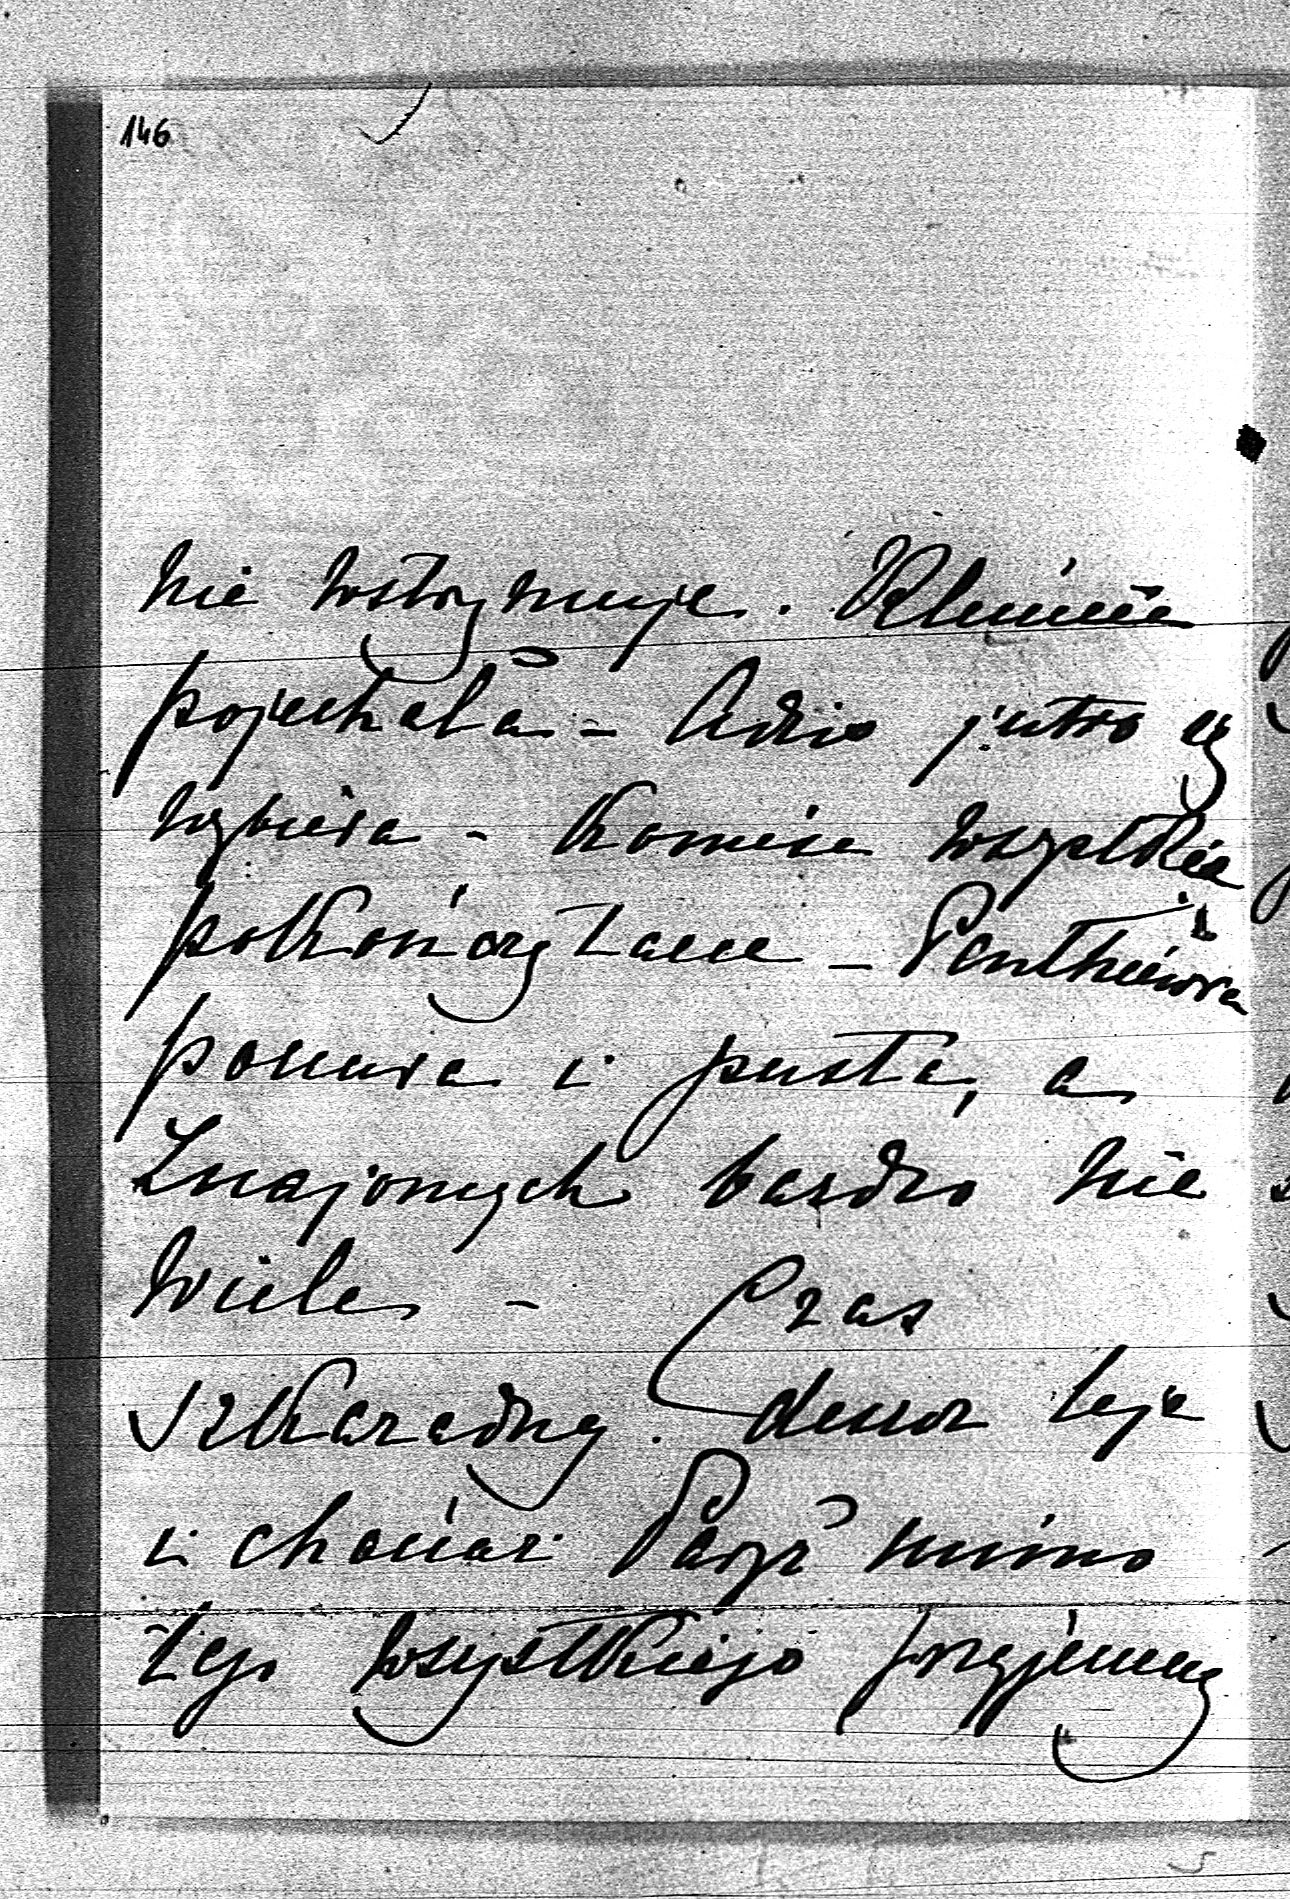 146
nie wstrzymuje. Klimcia
pojechała – Adzio jutro się
wybiera – Komisa wszystkie
pokończyłam – Penthièvra
ponura i pusta, a
Znajomych bardzo nie
wiele – Czas
szkaradny. deszcz leje
i chociaż Paryż mimo
tego wszystkiego przyjemny